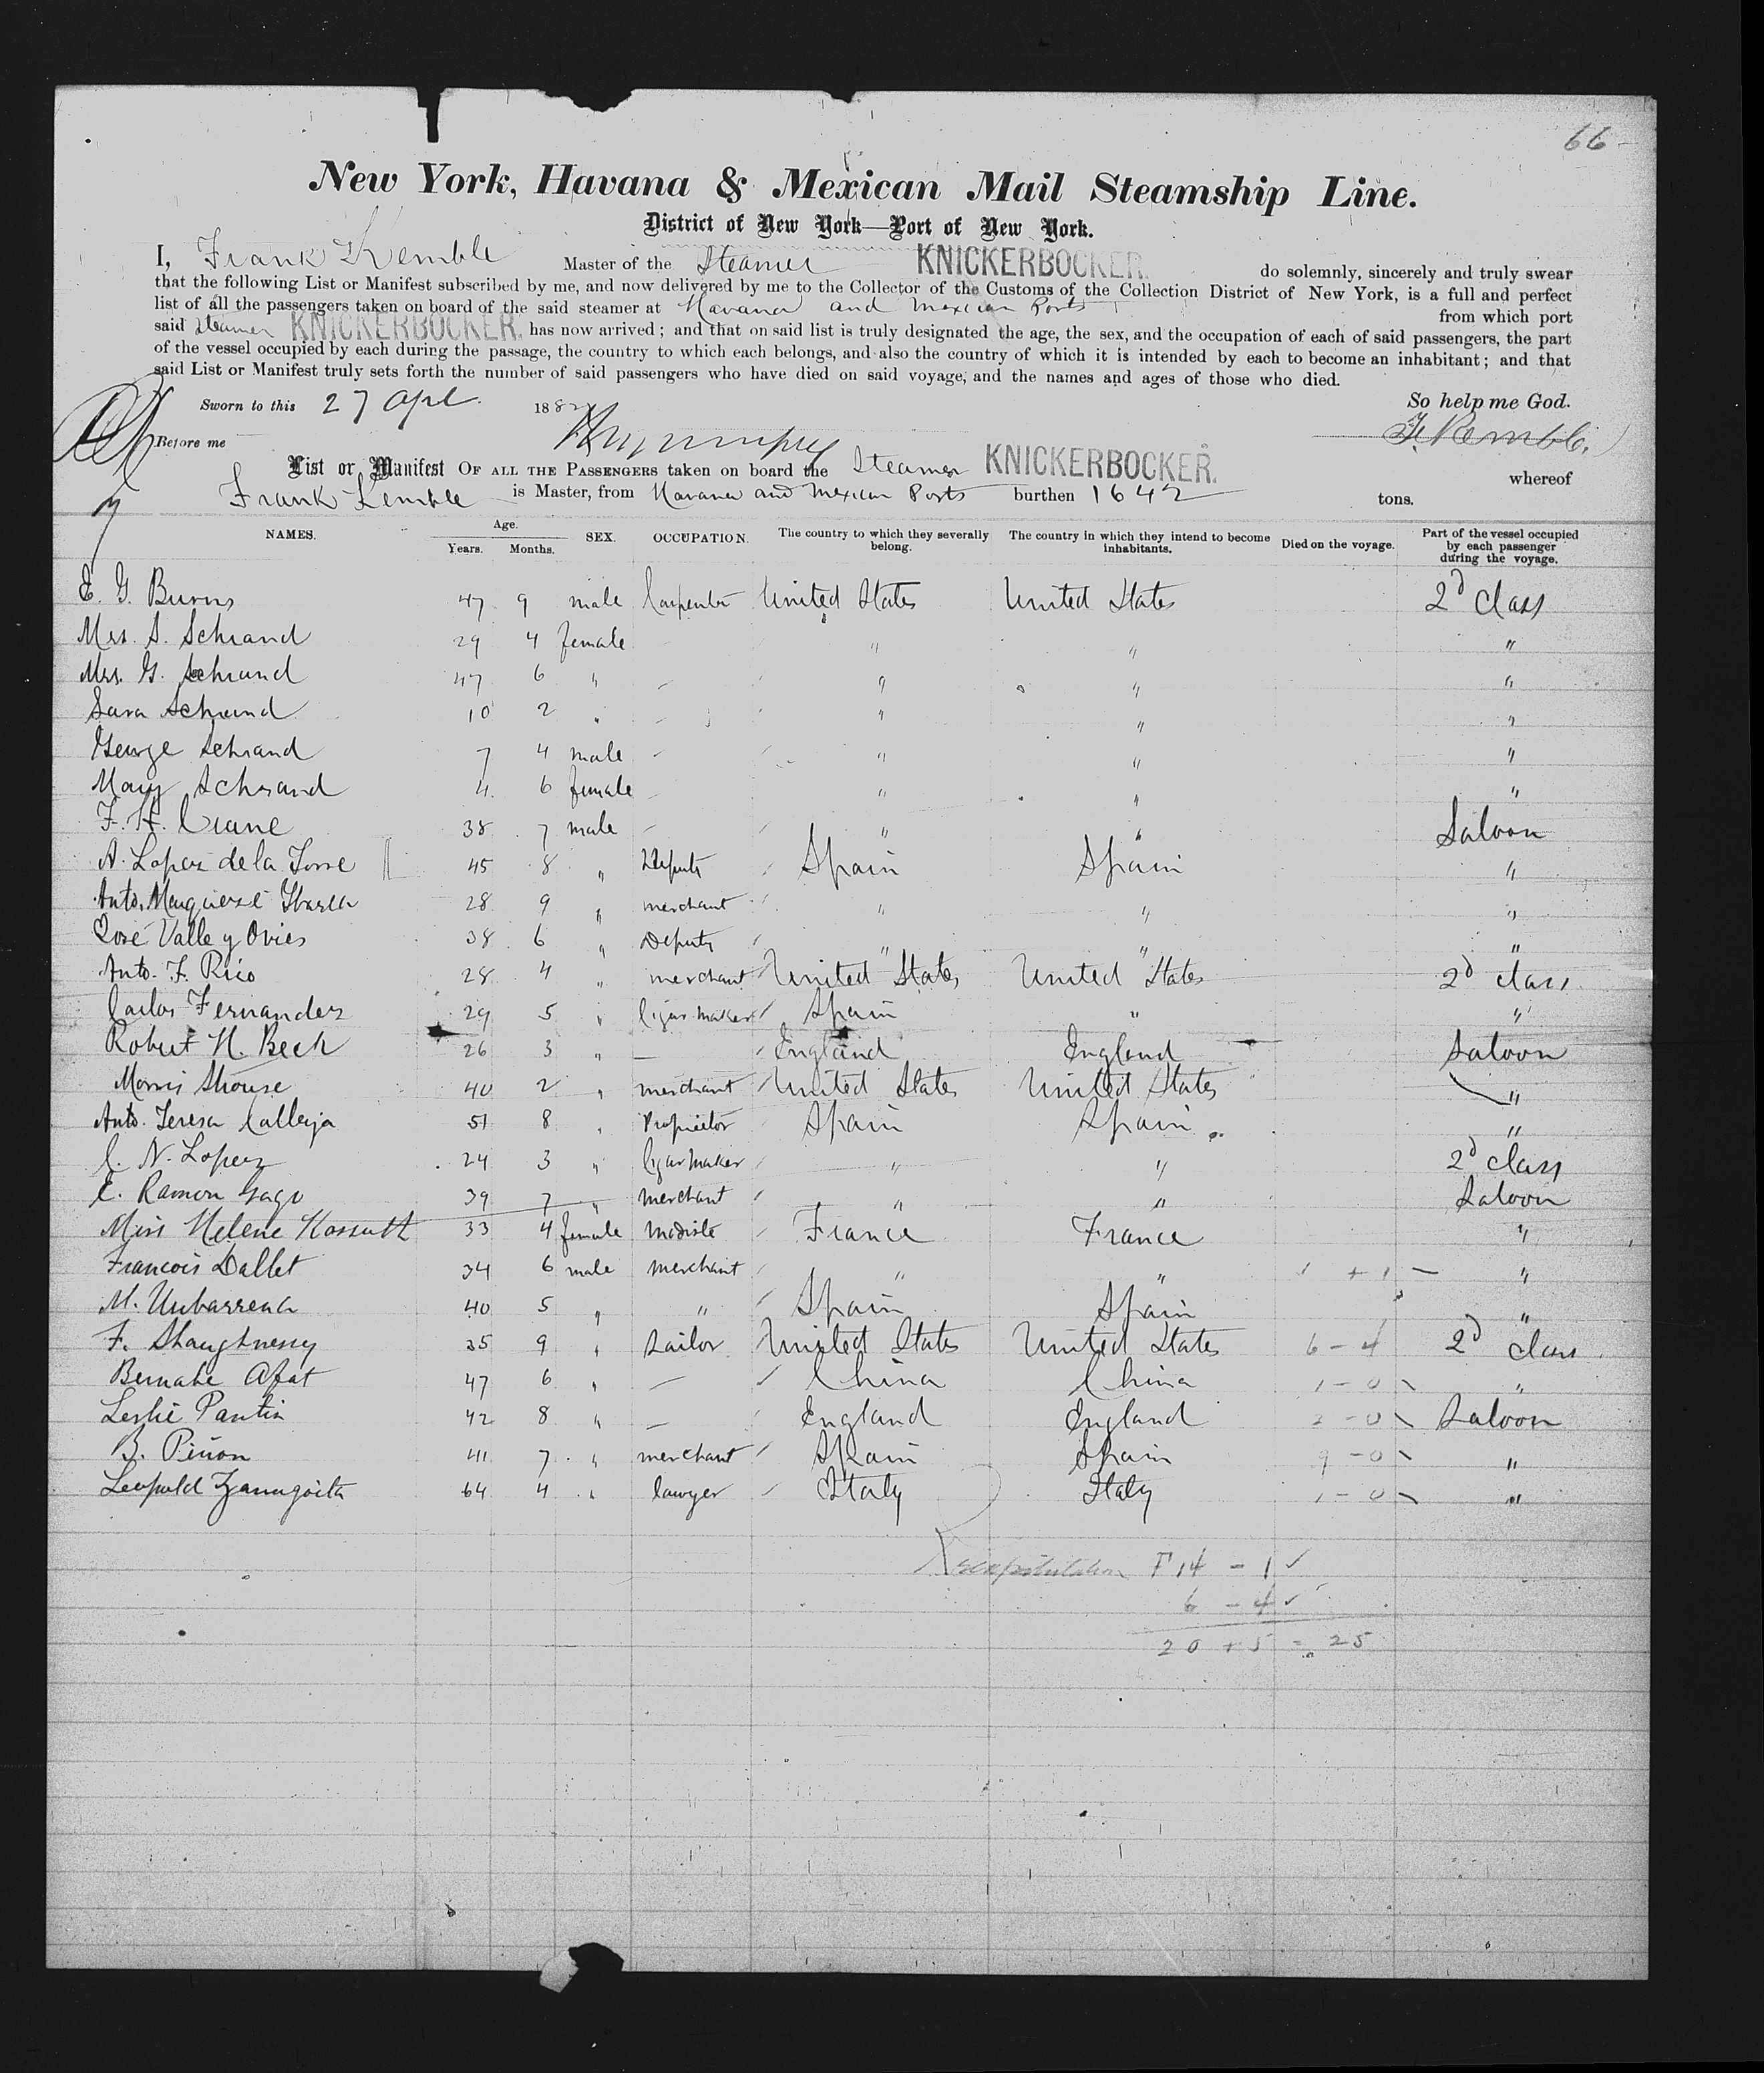 66
New York, Havana & Mexican Mail Steamship Line.
District of New York—Port of New York.
I, Frank Kemble Master of the Steamer KNICKERBOCKER. do solemnly, sincerely and truly swear
that the following List or Manifest subscribed by me, and now delivered by me to the Collector of the Customs of the Collection District of New York, is a full and perfect
list of all the passengers taken on board of the said steamer at Havana and Mexican Ports from which port
said Steamer KNICKERBOCKER. has now arrived; and that on said list is truly designated the age, the sex, and the occupation of each of said passengers, the part
of the vessel occupied by each during the passage, the country to which each belongs, and also the country of which it is intended by each to become an inhabitant; and that
said List or Manifest truly sets forth the number of said passengers who have died on said voyage, and the names and ages of those who died.
Sworn to this 27 Apl 1882 So help me God.
Before me F. Kemble.
List or Manifest OF ALL THE PASSENGERS taken on board the Steamer KNICKERBOCKER. whereof
Frank Kemble is Master, from Havana and Mexican Ports burthen 1642 tons.
NAMES. Age. Years. Months. SEX. OCCUPATION. The country to which they severally belong. The country in which they intend to become inhabitants. Died on the voyage. Part of the vessel occupied by each passenger during the voyage.
E. G. Burns 47 9 male Carpenter United States United States 2d Class
Mrs. S. Schrand 29 4 female " " "
Mrs. G. Schrand 47 6 " " " "
Sara Schrand 10 2 " " " "
George Schrand 7 4 male " " "
Mary Schrand 4 6 female " " "
F. H. Crane 38 7 male " " Saloon
A. Lopez de la Torre 45 8 " Deputy Spain Spain "
Anto. 28 9 " merchant " " "
José Valle y Ovies 38 6 " Deputy " " "
Anto. F. Rico 28 4 " merchant United States United States 2d class
Carlos Fernandez 29 5 " Cigar maker Spain " "
Robert N. Beck 26 3 " — England England Saloon
Morris Shouse 40 2 " merchant United States United States "
Anto. Teresa Calleja 51 8 " Proprietor Spain Spain "
C. N. Lopez 24 3 " Cigar maker " " 2d Class
E. Ramon Gago 39 7 " merchant " " Saloon
Miss Helene Kossuth 33 4 female Modiste France France "
Francois Dallet 34 6 male merchant " " 1 + 1 — "
M. 40 5 " " Spain Spain "
F. Shaughnessy 35 9 " Sailor United States United States 6 - 4 2d Class
Bernabe Afat 47 6 " — China China 1 - 0 "
Leslie Pantin 42 8 " — England England 2 - 0 Saloon
B. Piñon 41 7 " merchant Spain Spain 9 - 0 "
Leopold 64 4 " lawyer Italy Italy 1 - 0 "
Recapitulation 14 - 1 ✓
6 - 4 ✓
20 + 5 = 25